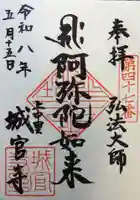 奉拝
第四十七番
弘法大師
阿弥陀如来
上中里
城官寺
令和八年
五月十五日